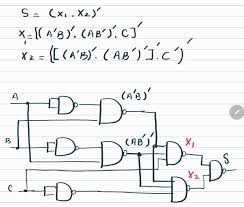 S = (x₁ . x₂)′
x₁ = [(A′B)′. (AB′)′. C]′
x′₂ = ([(A′B)′. (AB′)′]′. C′)′
A
(A′B)′
B
(AB′)′
X₁
S
X₂
C